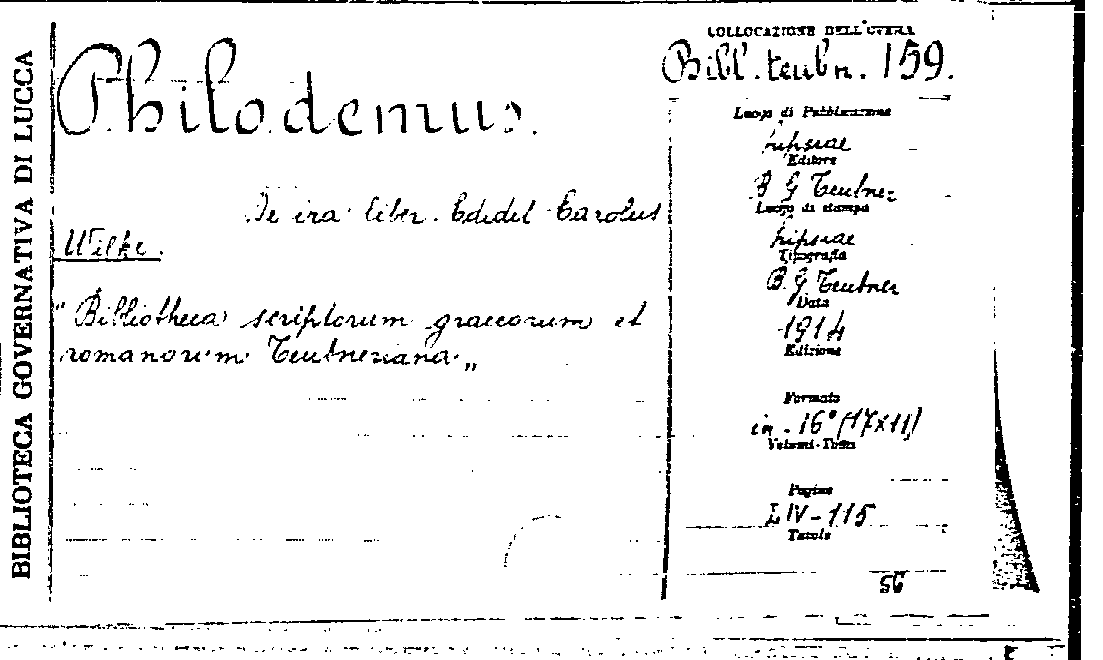 BIBLIOTECA GOVERNATIVA DI LUCCA
Philodemus.
De ira liber. Edidit Carolus
Wilke.
"Bibliotheca scriptorum graecorum et
romanorum Teubneriana„
COLLOCAZIONE DELL'OPERA
Bibl. teubn. 159.
Luogo di Pubblicazione
Lipsiae
Editore
B G Teubner
Luogo di stampa
Lipsiae
Tipografia
B. G Teubner
Data
1914
Edizione
Formato
in-16° (17x11)
Volumi-Tomi
Pagine
LIV-115
Tavole